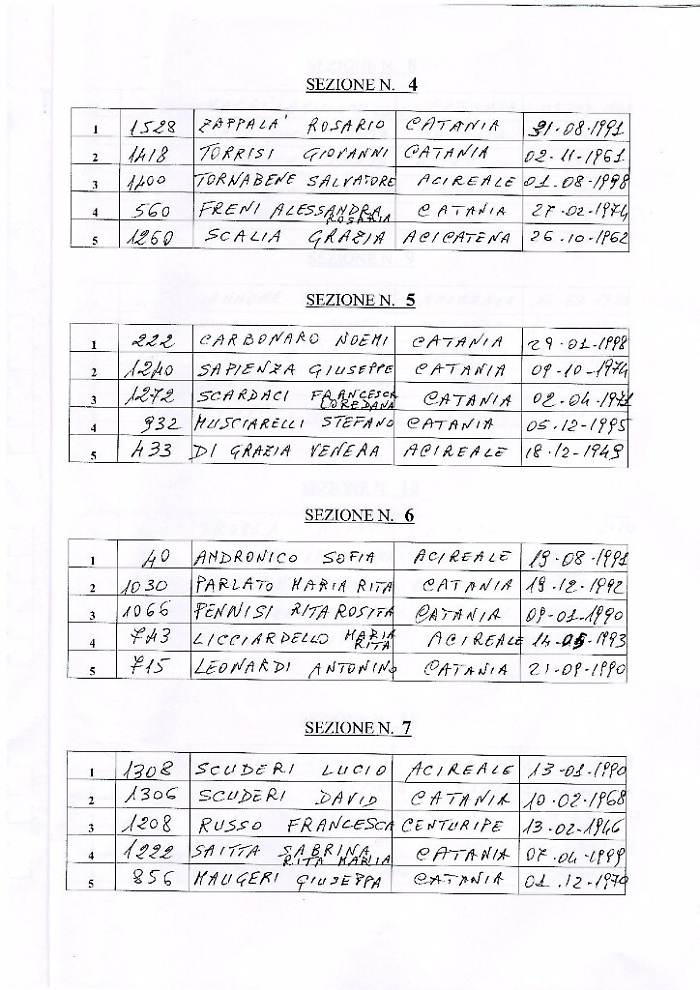 SEZIONE N. 4
1 1528 ZAPPALA' ROSARIO CATANIA 31-08-1991
2 1418 TORRISI GIOVANNI CATANIA 02-11-1961
3 1400 TORNABENE SALVATORE ACIREALE 01.08-1998
4 560 FRENI ALESSANDRA ROSARIA CATANIA 27-02-1974
5 1260 SCALIA GRAZIA ACICATENA 26-10-1962
SEZIONE N. 5
1 222 CARBONARO NOEMI CATANIA 29-01-1998
2 1240 SAPIENZA GIUSEPPE CATANIA 09-10-1974
3 1272 SCARDACI FRANCESCA LOREDANA CATANIA 02-04-1971
4 932 MUSCIARELLI STEFANO CATANIA 05-12-1995
5 433 DI GRAZIA VENERA ACIREALE 18-12-1949
SEZIONE N. 6
1 40 ANDRONICO SOFIA ACIREALE 19-08-1991
2 1030 PARLATO MARIA RITA CATANIA 19-12-1992
3 1066 PENNISI RITA ROSITA CATANIA 09-01-1990
4 743 LICCIARDELLO MARIA RITA ACIREALE 14-05-1993
5 715 LEONARDI ANTONINO CATANIA 21-09-1990
SEZIONE N. 7
1 1308 SCUDERI LUCIO ACIREALE 13-01-1990
2 1306 SCUDERI DAVID CATANIA 10-02-1968
3 1208 RUSSO FRANCESCA CENTURIPE 13-02-1946
4 1222 SAITTA SABRINA RITA MARIA CATANIA 07-04-1999
5 856 MAUGERI GIUSEPPA CATANIA 01.12-1970